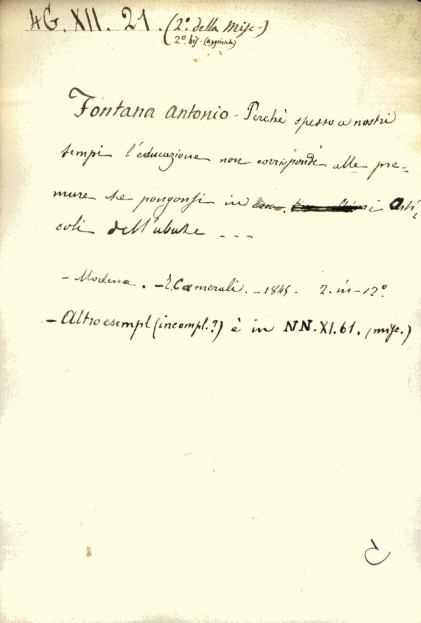 4G. XII. 21. (2º. della Misc-)
2º. bis - (aggiunta)
Fontana Antonio - Perchè spesso a nostri
tempi l'educazione non corrisponde alle pre-
mure che pongonsi in essa. i Arti-
coli dell'abate ---
- Modena. - Camerali. - 1845. 2. in - 12º.
- Altro esempl (incompl.?) è in NN. XI. 61. (misc.)